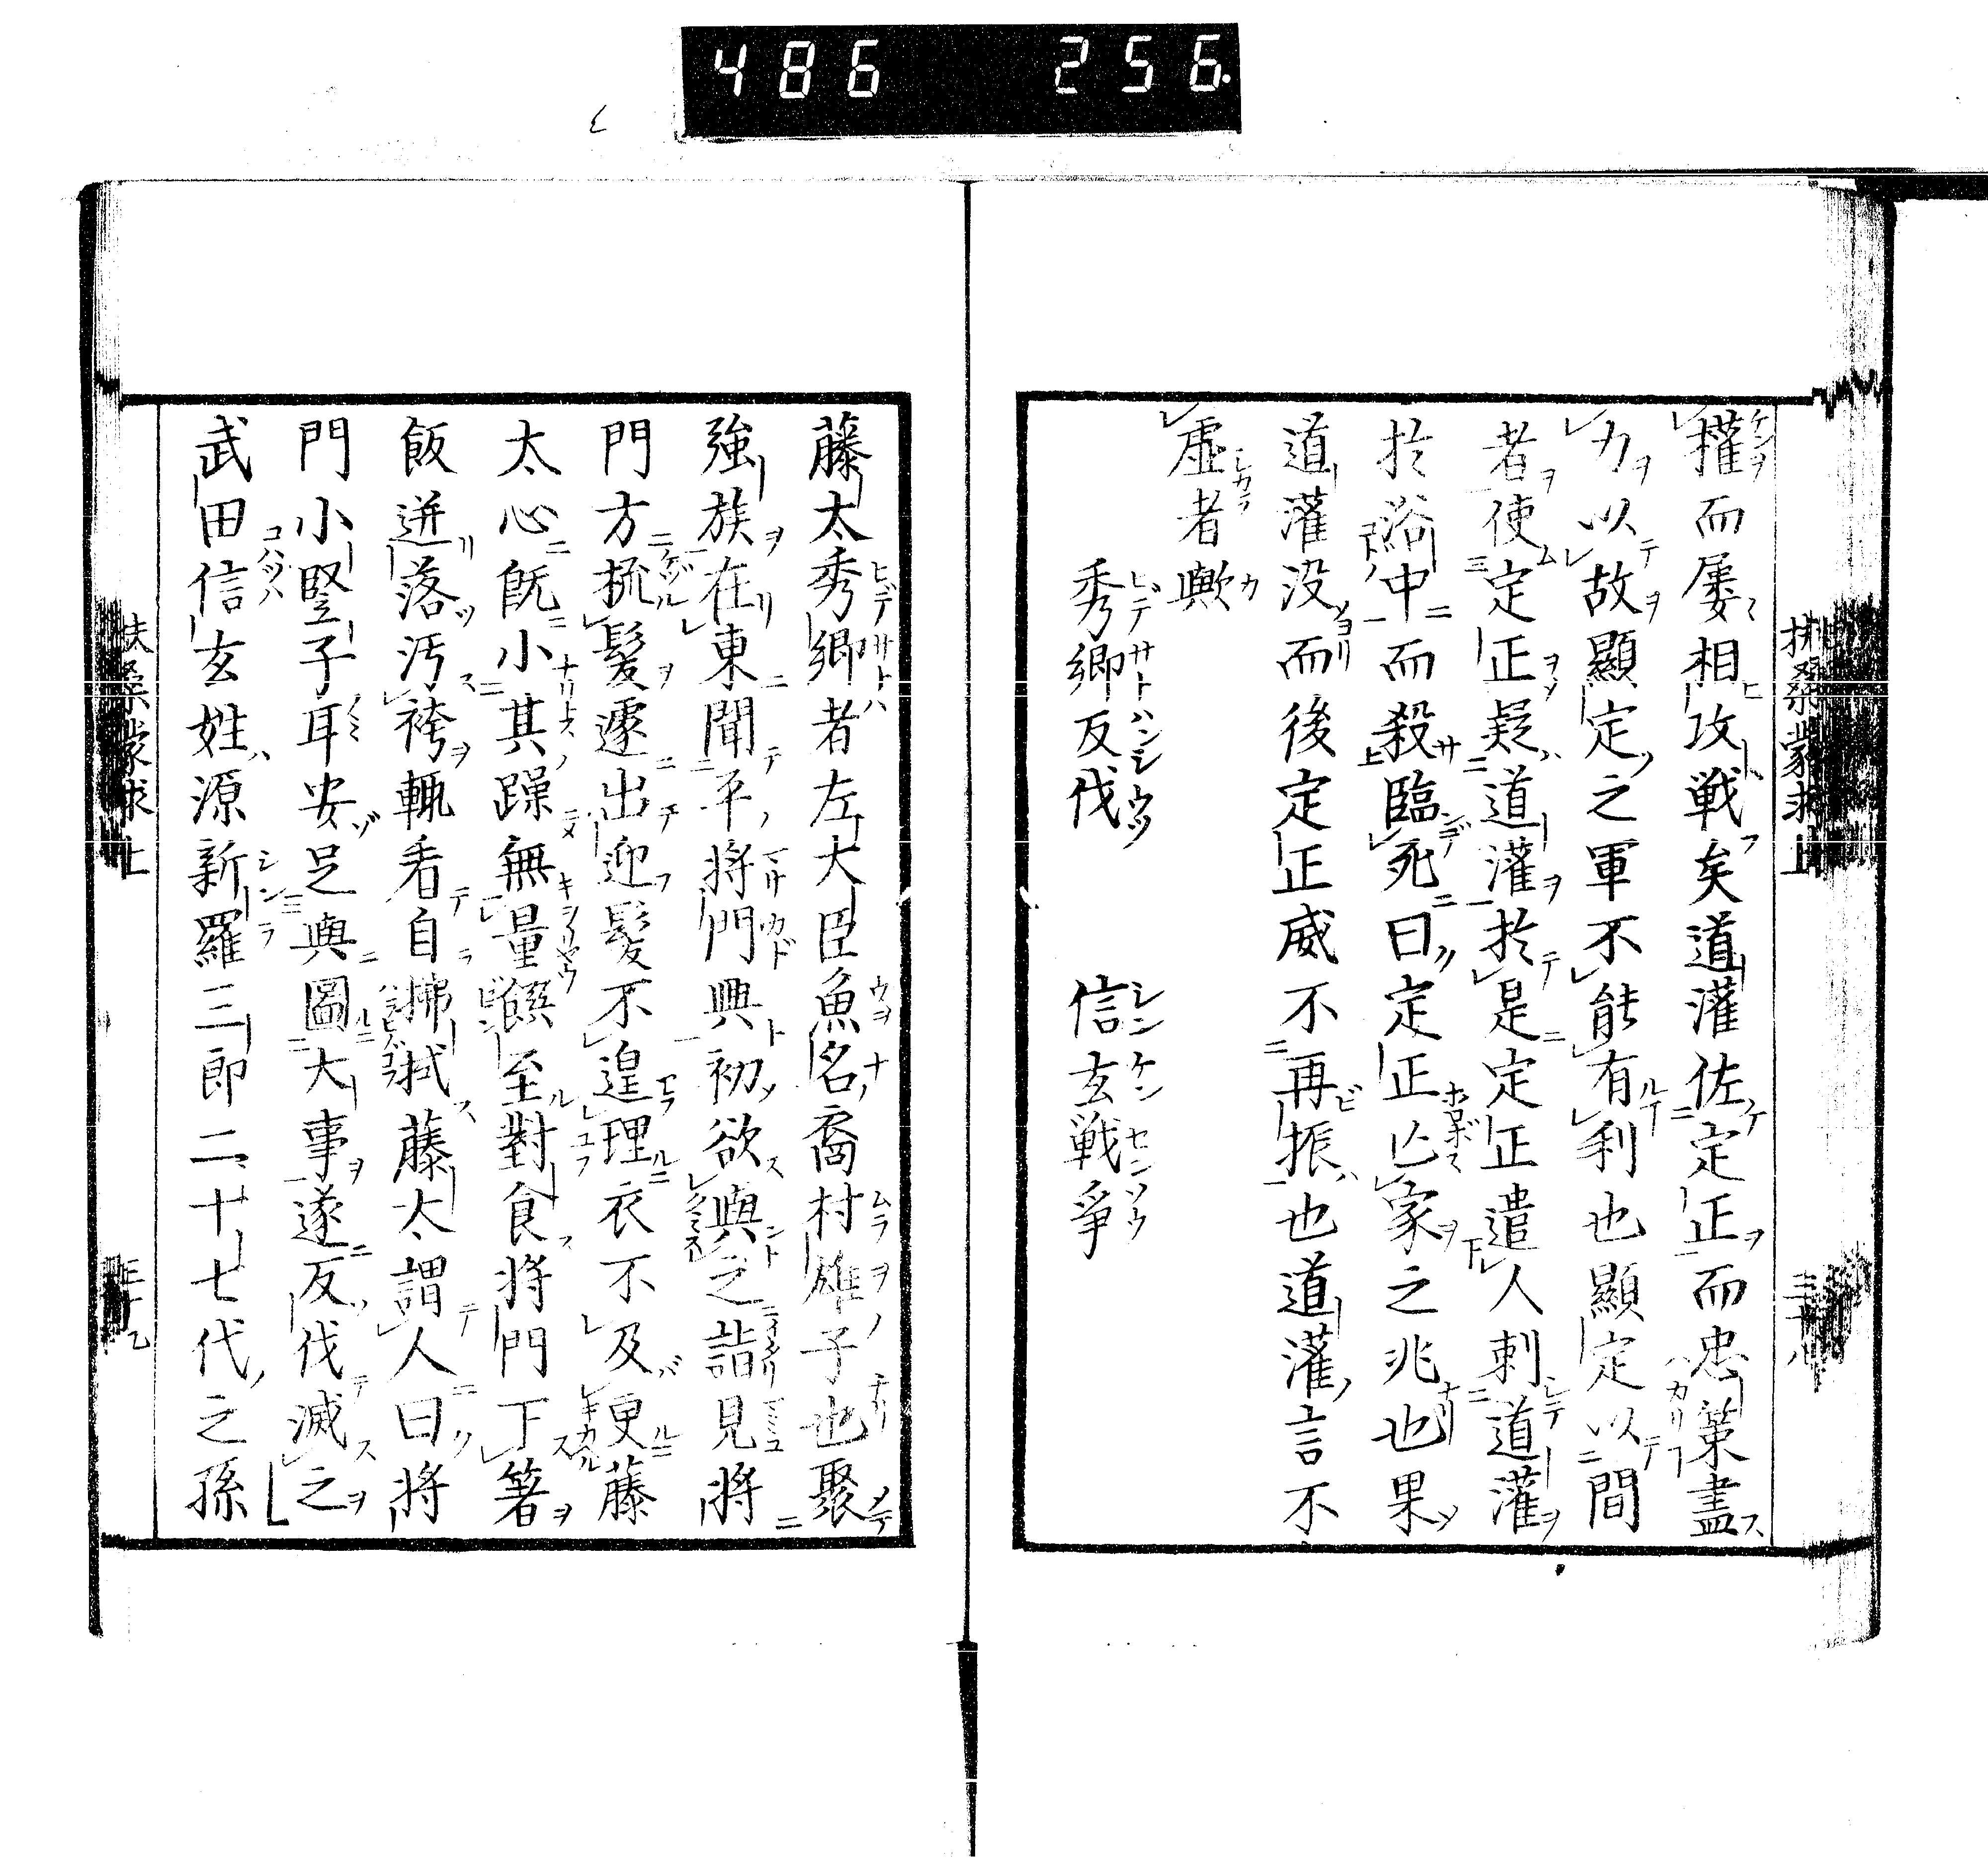 486 256.
扶桑蒙求上 三十八
權而屡相攻戦矣道灌佐定正而忠策盡
力以故顯定之軍不能有利也顯定以間
者使定正疑道灌於是定正遣人刺道灌
於浴中而殺臨死曰定正亡家之兆也果
道灌没而後定正威不再振也道灌言不
虚者歟
秀卿反伐 信玄戦爭
藤太秀卿者左大臣魚名裔村雄子也聚
強族在東聞平将門興初欲與之詣見将
門方梳髪遽出迎髪不遑理衣不及更藤
太心既小其躁無量饌至對食将門下箸
飯迸落汚袴輒看自拂拭藤太謂人曰将
門小豎子耳安足與圖大事遂反伐滅之
武田信玄姓源新羅三郎二十七代之孫
扶桑蒙求上 三十九